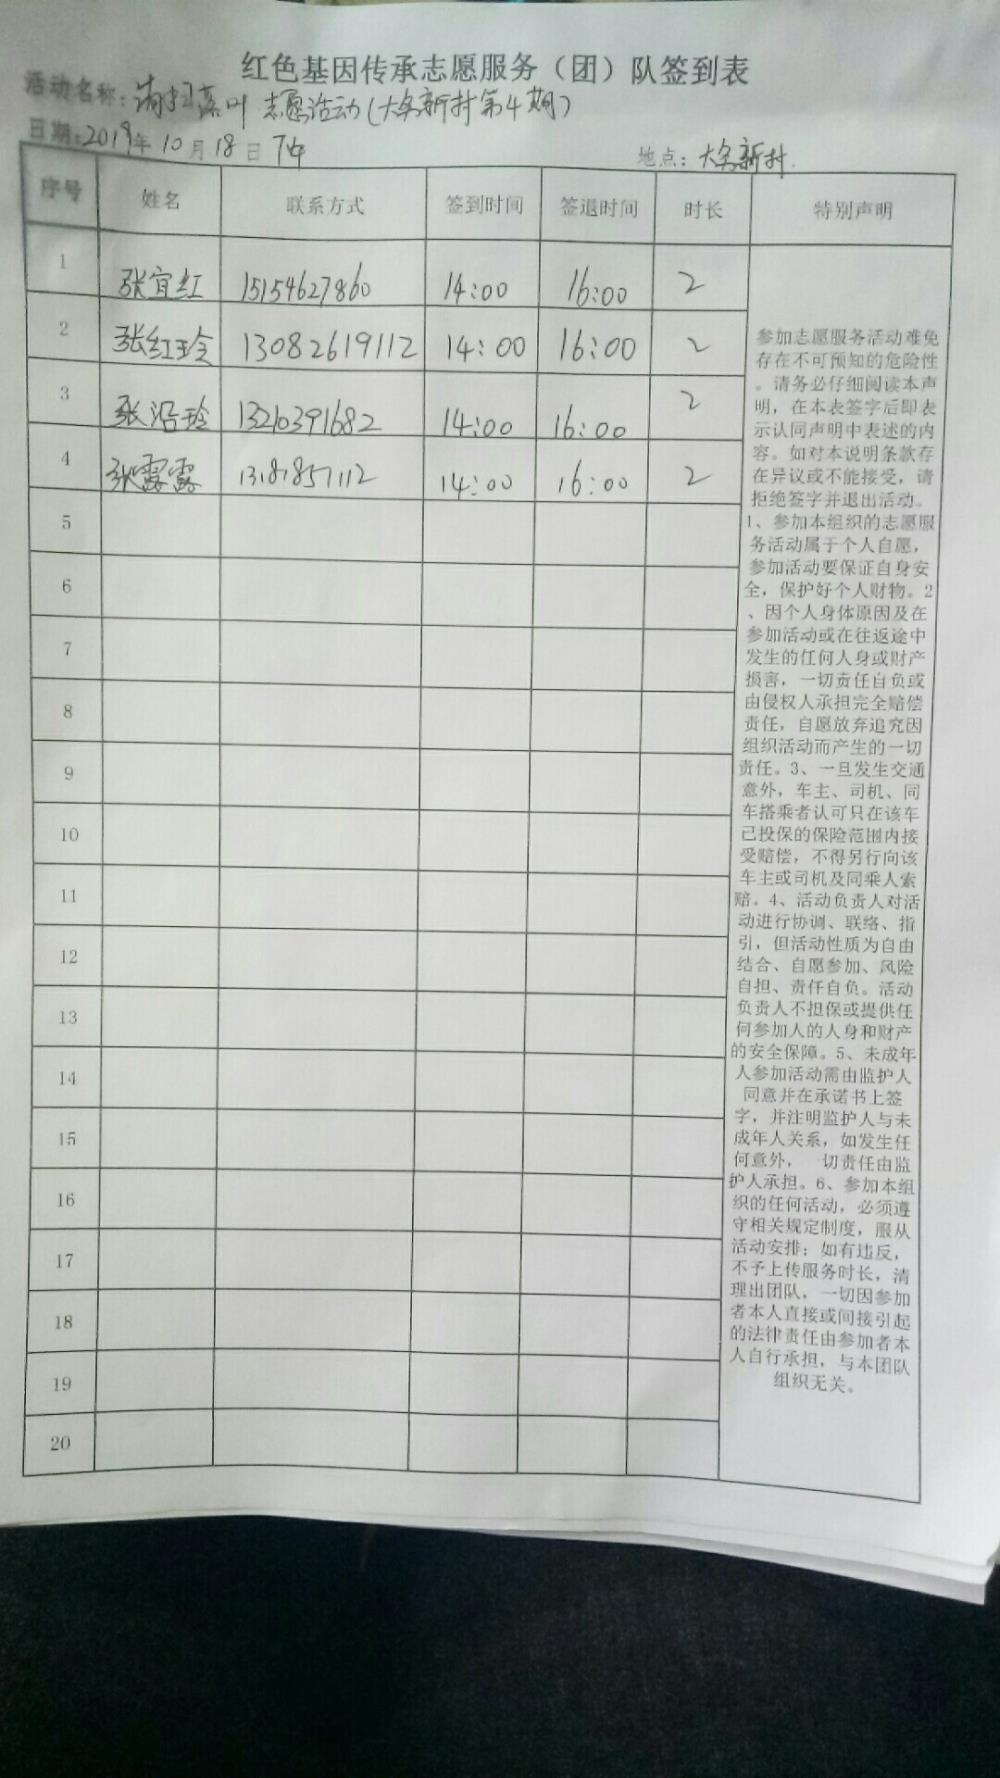 红色基因传承志愿服务（团）队签到表
活动名称：清扫落叶 志愿活动（大务新村第4期）
日期：2019年10月18日 下午 地点：大务新村.
序号 姓名 联系方式 签到时间 签退时间 时长 特别声明
1 张宜红 15154627860 14:00 16:00 2
2 张红玲 13082619112 14:00 16:00 2
3 张沿玲 13210391682 14:00 16:00 2
4 张露露 13181857112 14:00 16:00 2
5
6
7
8
9
10
11
12
13
14
15
16
17
18
19
20
参加志愿服务活动难免
存在不可预知的危险性
。请务必仔细阅读本声
明，在本表签字后即表
示认同声明中表述的内
容。如对本说明条款存
在异议或不能接受，请
拒绝签字并退出活动。
1、参加本组织的志愿服
务活动属于个人自愿，
参加活动要保证自身安
全，保护好个人财物。2
、因个人身体原因及在
参加活动或在往返途中
发生的任何人身或财产
损害，一切责任自负或
由侵权人承担完全赔偿
责任，自愿放弃追究因
组织活动而产生的一切
责任。3、一旦发生交通
意外，车主、司机、同
车搭乘者认可只在该车
已投保的保险范围内接
受赔偿，不得另行向该
车主或司机及同乘人索
赔。4、活动负责人对活
动进行协调、联络、指
引，但活动性质为自由
结合、自愿参加、风险
自担、责任自负。活动
负责人不担保或提供任
何参加人的人身和财产
的安全保障。5、未成年
人参加活动需由监护人
同意并在承诺书上签
字，并注明监护人与未
成年人关系，如发生任
何意外，一切责任由监
护人承担。6、参加本组
织的任何活动，必须遵
守相关规定制度，服从
活动安排；如有违反，
不予上传服务时长，清
理出团队，一切因参加
者本人直接或间接引起
的法律责任由参加者本
人自行承担，与本团队
组织无关。